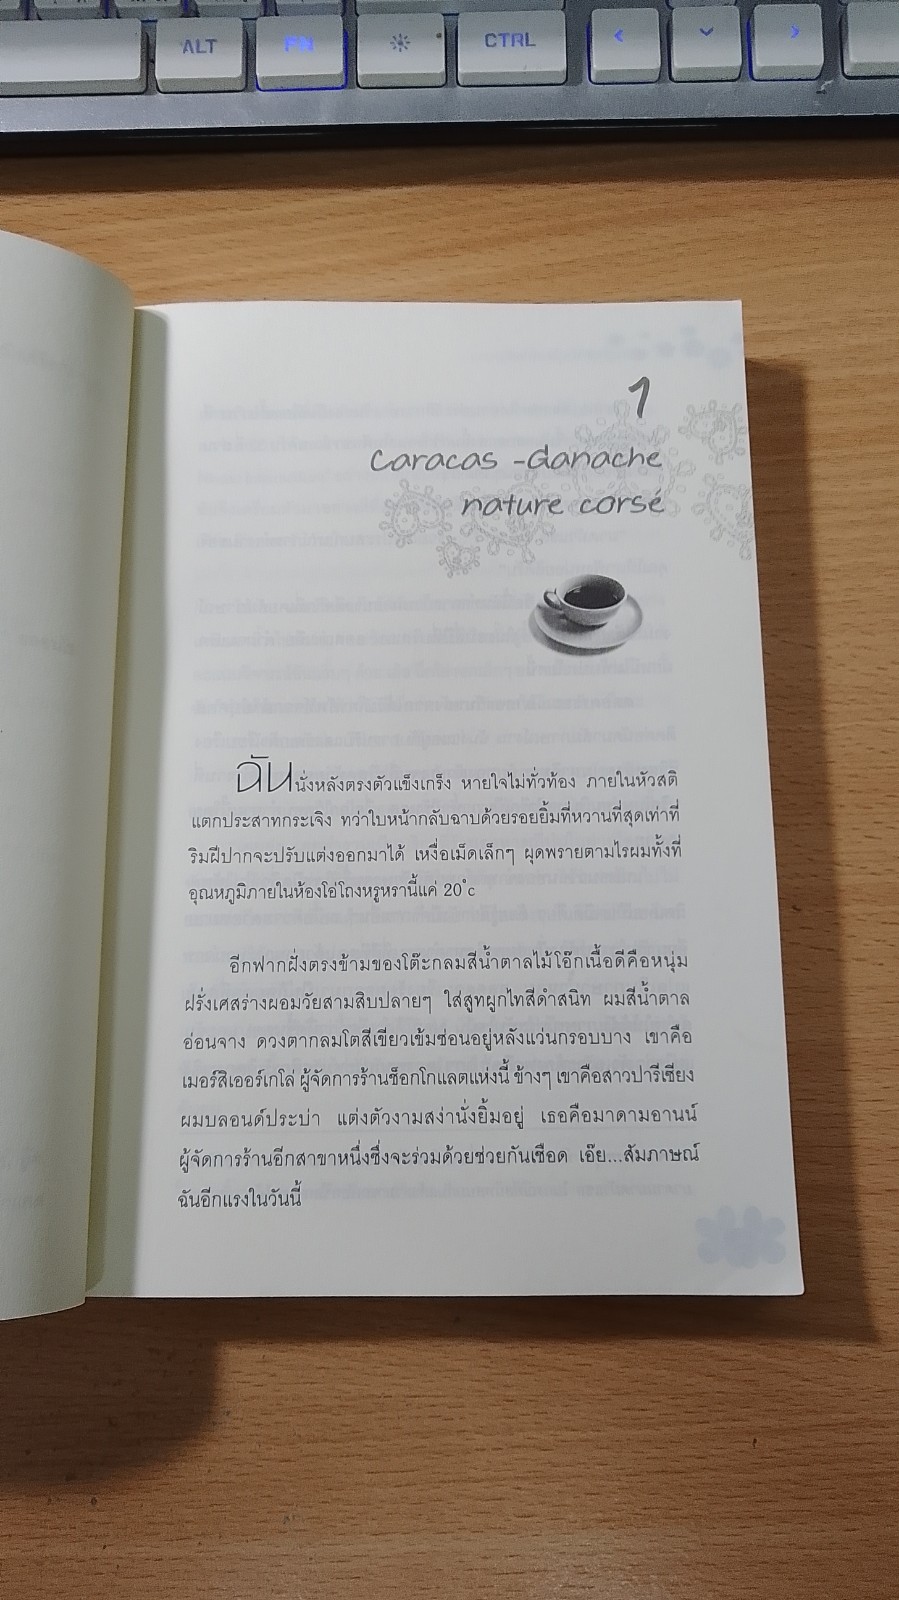 ALT
FN
CTRL
1
Caracas -Ganache
nature corsé
ฉันนั่งหลังตรงตัวแข็งเกร็ง หายใจไม่ทั่วท้อง ภายในหัวสติ
แตกประสาทกระเจิง ทว่าใบหน้ากลับฉาบด้วยรอยยิ้มที่หวานที่สุดเท่าที่
ริมฝีปากจะปรับแต่งออกมาได้ เหงื่อเม็ดเล็กๆ ผุดพรายตามไรผมทั้งที่
อุณหภูมิภายในห้องโอ่โถงหรูหรานี้แค่ 20°c
อีกฟากฝั่งตรงข้ามของโต๊ะกลมสีน้ำตาลไม้โอ๊กเนื้อดีคือหนุ่ม
ฝรั่งเศสร่างผอมวัยสามสิบปลายๆ ใส่สูทผูกไทสีดำสนิท ผมสีน้ำตาล
อ่อนจาง ดวงตากลมโตสีเขียวเข้มซ่อนอยู่หลังแว่นกรอบบาง เขาคือ
เมอร์สิเออร์เกโล่ ผู้จัดการร้านช็อกโกแลตแห่งนี้ ข้างๆ เขาคือสาวปารีเซียง
ผมบลอนด์ประบ่า แต่งตัวงามสง่านั่งยิ้มอยู่ เธอคือมาดามอานน์
ผู้จัดการร้านอีกสาขาหนึ่งซึ่งจะร่วมด้วยช่วยกันเชือด เอ๊ย...สัมภาษณ์
ฉันอีกแรงในวันนี้